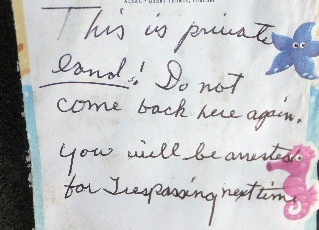 This is private
land! Do not
come back here again.
You will be arrested
for Trespassing next time